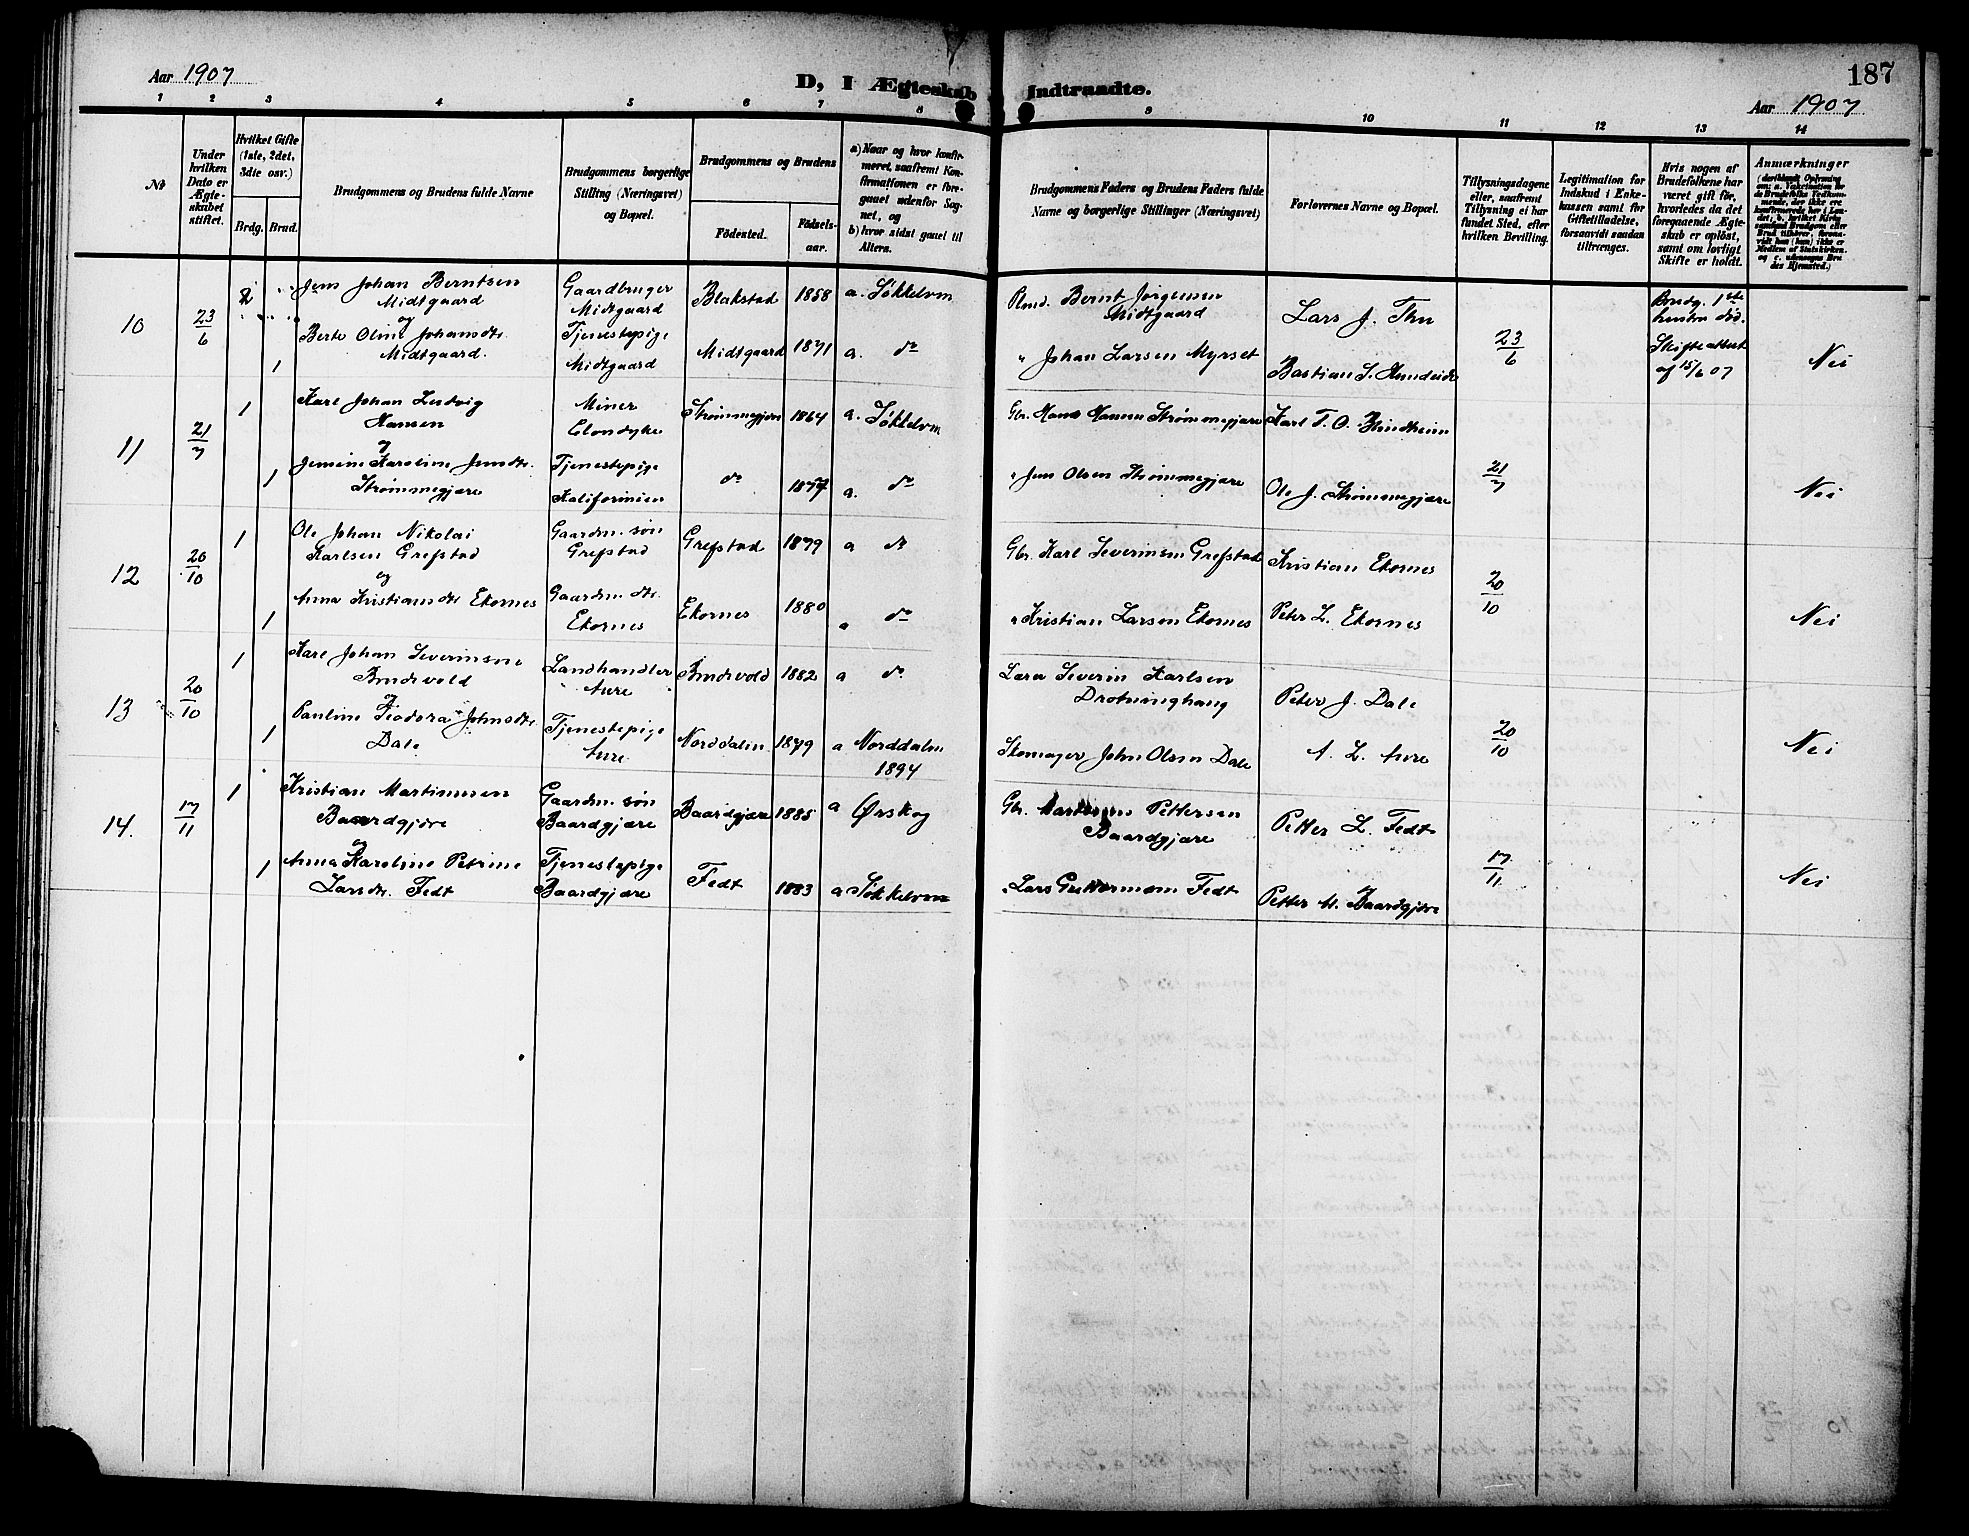 Aar 1907
D, I Ægteskab Indtraadte.
187
Aar 1907
1 2 3 4 5 6 7 8 9 10 11 12 13 14
№
Under hvilken Dato er Ægteskabet stiftet.
Hvilket Gifte (1ste, 2det, 3die osv.)
Brdg. Brud.
Brudgommens og Brudens fulde Navne
Brudgommens borgerlige Stilling (Næringsvei) og Bopæl.
Brudgommens og Brudens
Fødested.
Fødselsaar.
a) Naar og hvor konfirmeret, saafremt Konfirmationen er foregaaet udenfor Sognet, og
b) hvor sidst gaaet til Alters.
Brudgommens Faders og Brudens Faders fulde Navne og borgerlige Stillinger (Næringsvei)
Forlovernes Navne og Bopæl.
Tillysningsdagene eller, saafremt Tillysning ei har fundet Sted, efter hvilken Bevilling.
Legitimation for Indskud i Enkekassen samt for Giftetilladelse, forsaavidt saadan tiltrænges.
Hvis nogen af Brudefolkene har været gift før, hvorledes da det foregaaende Ægteskab er opløst, samt om lovligt Skifte er holdt.
Anmærkninger
10
23/6
2
Jens Johan Berntsen
Midtgaard
og
Gaardbruger
Midtgaard
Blakstad
1858
a. Søkkelvn
Bernt Jørgensen
Midtgaard
Lars J. Thu
23/6
Brudg. 1ste
hustru død.
Skifteattest
af 15/6 07
Nei
1
Berte Oline Johansdtr.
Midtgaard.
Tjenestepige
Midtgaard
Midtgaard
1871
a. do
" Johan Larsen Myrset
Bastian S.
11
21/7
1
Karl Johan Ludvig
Hansen
og
Miner
Clondyke
Strømmegjære
1864
a. Søkkelvn
Gbr. Hans Hansen Strømmegjære
Karl T. O. Blindheim
21/7
Nei
1
Jensine Karoline Jensdtr.
Strømmegjære
Tjenestepige
Kalifornien
do
1877
a. do
" Jens Olsen Strømmegjære
Ole J. Strømmegjære
12
20/10
1
Ole Johan Nikolai
Karlsen Grefstad
og
Gaardm. søn
Grefstad
Grefstad
1879
a do
Gbr. Karl Severinsen Grefstad
Kristian Ekornes
20/10
Nei
1
Anna Kristiansdtr Ekornes
Gaardm. dtr.
Ekornes
Ekornes
1880
a do
" Kristian Larsen Ekornes
Peter L. Ekornes
13
20/10
1
Karl Johan Severinsen
Brudevold
og
Landhandler
Aure
Brudevold
1882
a do
Lærer Severin Karlsen
Drotninghaug
Peter J. Dale
20/10
Nei
1
Pauline Teodora Johnsdtr.
Dale
Tjenestepige
Aure
Norddalen
1879
a Norddalen
1894
Skomager John Olsen Dale
A. L. Aure
14.
17/11
1
Kristian Martinusen
Baardgjære
og
Gaardm. søn
Baardgjære
Baardgjære
1885
a Ørskog
Gbr. Martinus Pettersen
Baardgjære
Petter L. Fedt
17/11
Nei
1
Anna Karoline Petrine
Larsdtr. Fedt
Tjenestepige
Baardgjære
Fedt
1883
a Søkkelven
" Lars Guttormsen Fedt
Petter M. Baardgjære